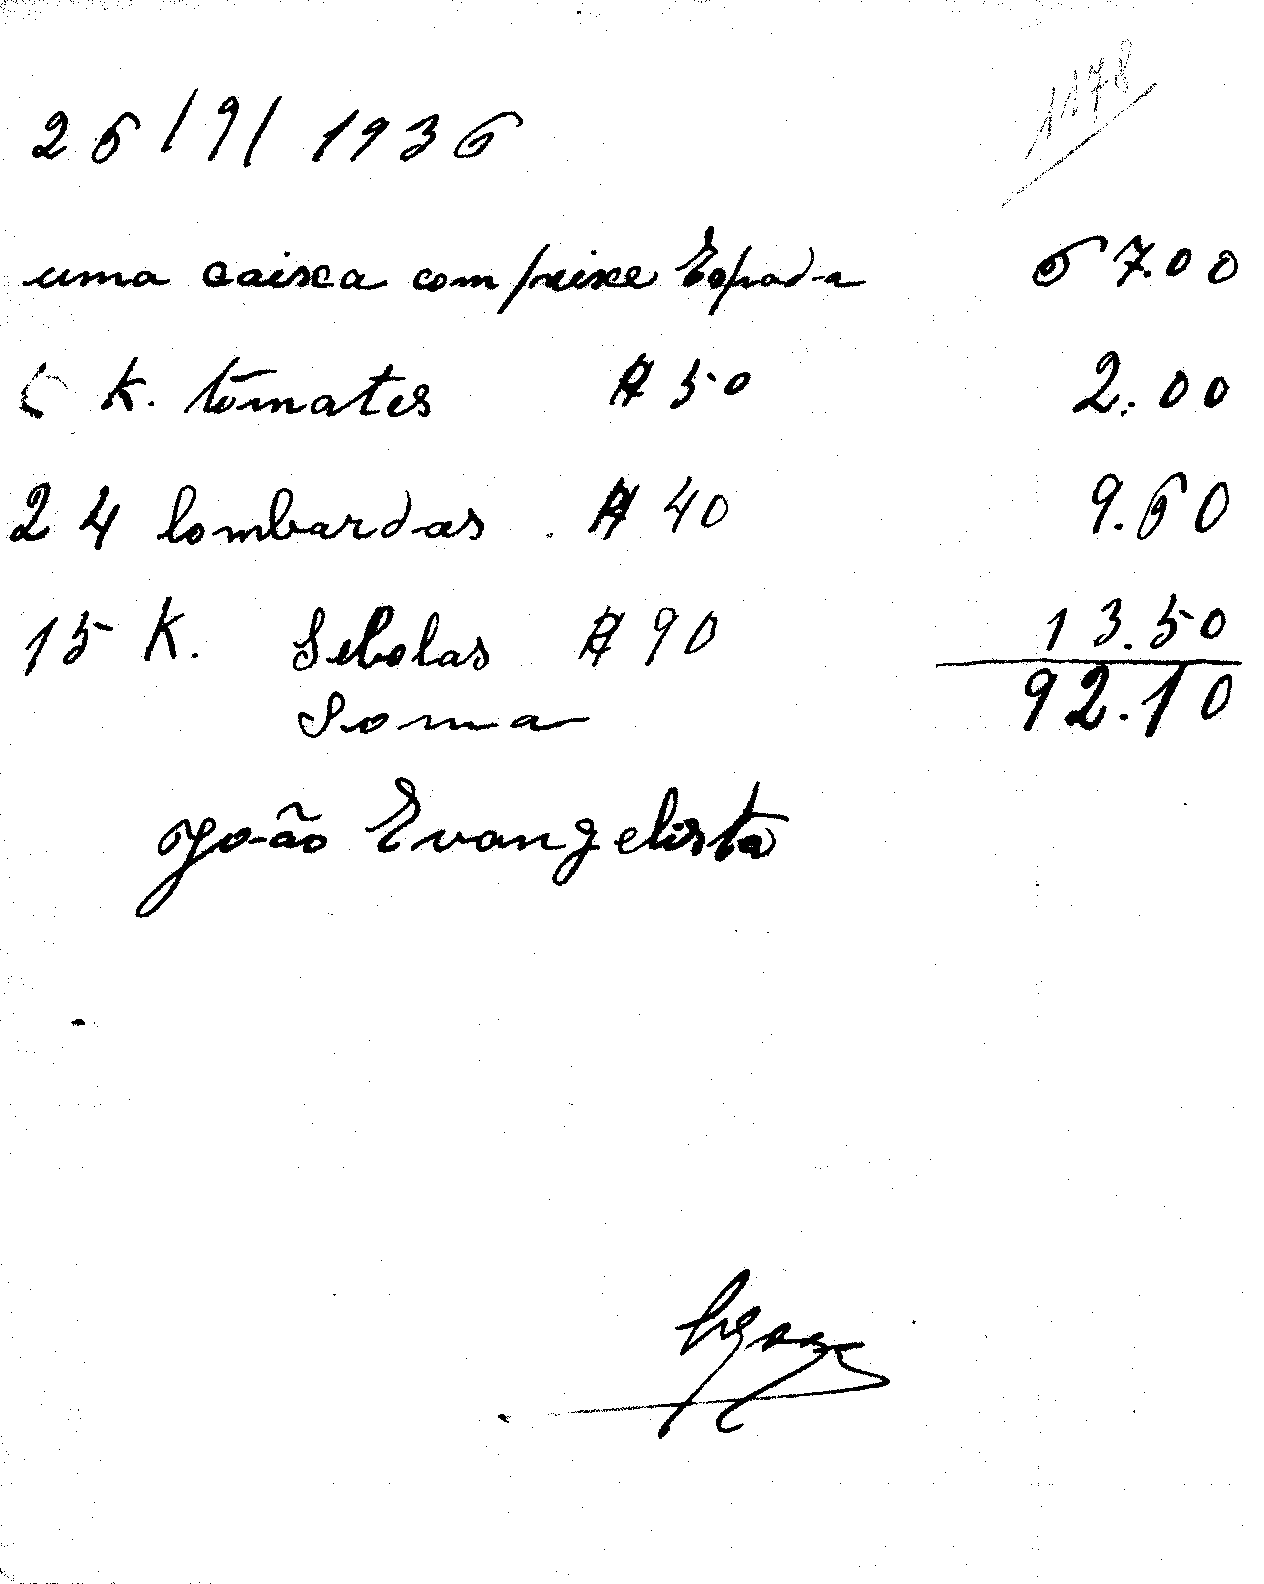 1178
26/9/1936
uma caixa com peixe Espada 67.00
K. tomates $50 2.00
24 lombardas $40 9.60
15 K. Sebolas $90 13.50
Soma 92.10
João Evangelista